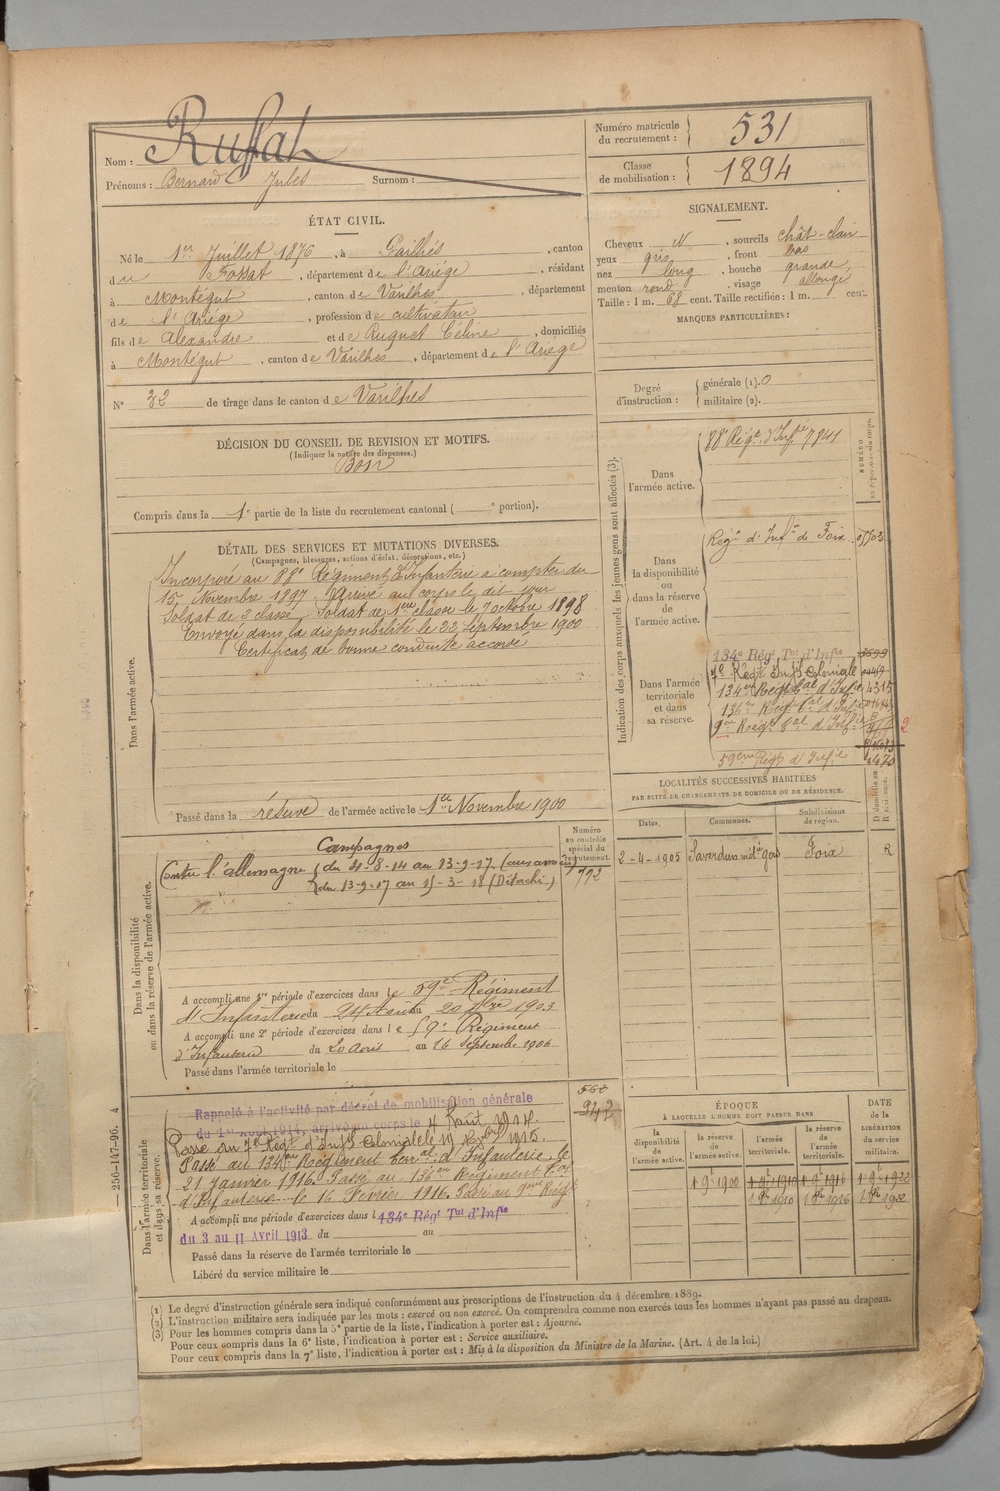 Nom : Ruffat
Prénoms : Bernard Jules Surnom :
Numéro matricule du recrutement : 531
Classe de mobilisation : 1894
ÉTAT CIVIL.
Né le 1er Juillet 1876, à Gailhés, canton
du Fossat, département de l'Ariége, résidant
à Montégut, canton de Varilhes, département
de l'Ariége, profession de cultivateur
fils de Alexandre et de Ruquet Céline, domiciliés
à Montégut, canton de Varilhes, département de l'Ariége
N° 32 de tirage dans le canton de Varilhes
SIGNALEMENT.
Cheveux N, sourcils chât-clair
yeux gris, front bas
nez long, bouche grande
menton rond, visage allongé
Taille : 1 m. 68 cent. Taille rectifiée : 1 m. cent.
MARQUES PARTICULIÈRES :
Degré d'instruction : générale (1). 0
militaire (2).
DÉCISION DU CONSEIL DE REVISION ET MOTIFS.
(Indiquer la nature des dispenses.)
Bon
Compris dans la 1e partie de la liste du recrutement cantonal ( e portion).
DÉTAIL DES SERVICES ET MUTATIONS DIVERSES.
(Campagnes, blessures, actions d'éclat, décorations, etc.)
Dans l'armée active.
Incorporé au 88e Régiment d'Infanterie à compter du
15 Novembre 1897. Arrivé au corps le dit jour
Soldat de 2 classe. Soldat de 1ere classe le 7 octobre 1898
Envoyé dans la disponibilité le 22 Septembre 1900
Certificat de bonne conduite accordé
Passé dans la réserve de l'armée active le 1er Novembre 1900
Indication des corps auxquels les jeunes gens sont affectés (3).
Dans l'armée active.
88e Régt d'Infie 7841
Dans la disponibilité ou dans la réserve de l'armée active.
Régnt d'Infie de Foix
Dans l'armée territoriale et dans sa réserve.
134e Régt Tal d'Infie 3599
7e Régt Infie Coloniale
134em Régt tal d'Infie 4315
136em Régt tal d'Infie
9em Régt tal d'Infie
59eme Régt d'Infie
2
LOCALITÉS SUCCESSIVES HABITÉES
PAR SUITE DE CHANGEMENTS DE DOMICILE OU DE RÉSIDENCE.
Dates. Communes. Subdivisions de région. D domicile ou R résidence.
2-4-1905 Saverdun Foix R
Dans la disponibilité ou dans la réserve de l'armée active.
Numéro au contrôle spécial du recrutement.
792
Campagnes
Contre l'allemagne du 4-8-14 au 13-9-17 (aux armées)
du 13-9-17 au 15-3-18 (Détaché)
A accompli une 1re période d'exercices dans le 59e Régiment
d'Infanterie du 24 Août au 20 7bre 1903
A accompli une 2e période d'exercices dans le 59e Régiment
d'Infanterie du 20 Août au 16 Septembre 1906
Passé dans l'armée territoriale le
Dans l'armée territoriale et dans sa réserve.
560
942
Rappelé à l'activité par décret de mobilisation générale
du 1er Août 1914, arrivé au corps le 4 Août 1914.
Passé au 7e Régt d'Infie Coloniale le 19 1915.
Passé au 134em Régiment terral d'Infanterie le
21 janvier 1916. Passé au 136em Régiment tal
d'Infanterie le 16 Février 1916. Passé au 9eme Régt
A accompli une période d'exercices dans l 134e Régt Tal d'Infie
du 3 au 11 Avril 1913 du au
Passé dans la réserve de l'armée territoriale le
Libéré du service militaire le
ÉPOQUE
À LAQUELLE L'HOMME DOIT PASSER DANS
DATE de la LIBÉRATION du service militaire.
la disponibilité de l'armée active. la réserve de l'armée active. l'armée territoriale. la réserve de l'armée territoriale.
1 9t 1900 1 9t 1910 1 9t 1916 1 9t 1922
1 8t 1910 1 8t 1916 1 8t 1922
256-147-96. 4
(1) Le degré d'instruction générale sera indiqué conformément aux prescriptions de l'instruction du 4 décembre 1889.
(2) L'instruction militaire sera indiquée par les mots : exercé ou non exercé. On comprendra comme non exercés tous les hommes n'ayant pas passé au drapeau.
(3) Pour les hommes compris dans la 5e partie de la liste, l'indication à porter est : Ajourné.
Pour ceux compris dans la 6e liste, l'indication à porter est : Service auxiliaire.
Pour ceux compris dans la 7e liste, l'indication à porter est : Mis à la disposition du Ministre de la Marine. (Art. 4 de la loi.)